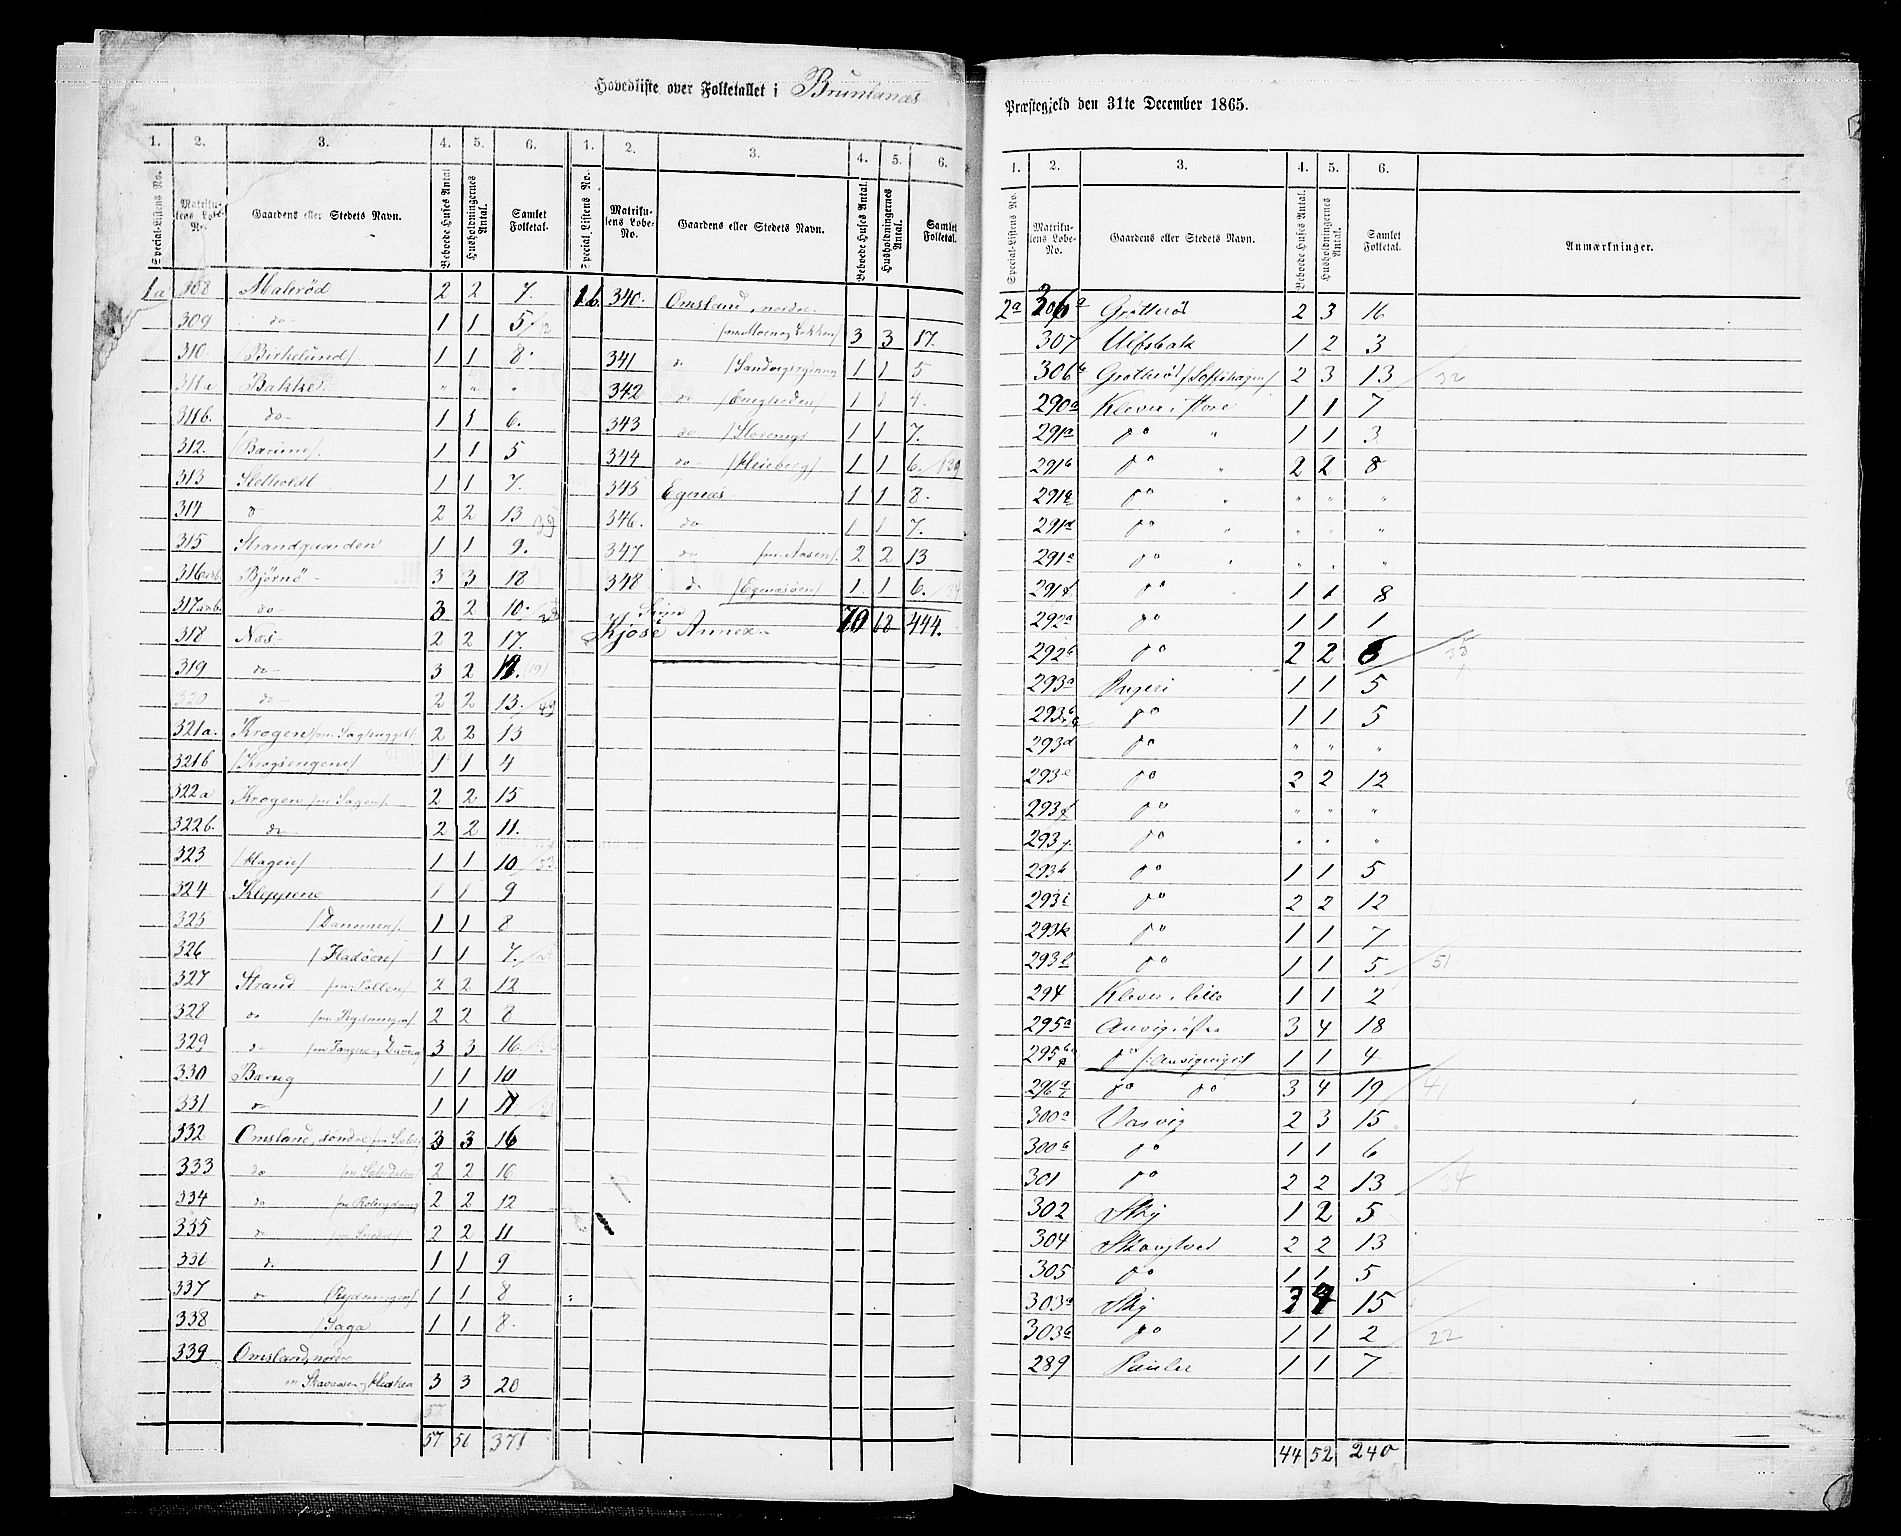 Hovedliste over Folketallet i Brunlanæs
Præstegjeld den 31te December 1865.
1. 2. 3. 4. 5. 6. 1. 2. 3. 4. 5. 6.
Special-Listens No. Matrikulens Løbe-No. Gaardens eller Stedets Navn. Beboede Huses Antal Husholdningernes Antal. Samlet Folketal. Special Listens No. Matrikulens Løbe-No. Gaardens eller Stedets Navn. Beboede Huses Antal. Husholdningernes Antal. Samlet Folketal.
1a 308 Malerød 2 2 7.
309 do 1 1 5/12
310. /Birkelund/ 1 1 8.
311a Bakke. " " "
311b. do 1 1 6.
312. /Barum/. 1 1 5
313 Sletholdt 1 1 7.
314 do 2 2 13 39
315 Strandgaarden 1 1 9.
316a&b Bjørnø 3 3 18
317a&b. do 3 2 10./28
318 Næs 2 2 17.
319 do 3 2
320 do 2 2 13./49
321a. Krogen /m Saghugget/. 2 2 13
321b /Krogsengene/ 1 1 4
322a Krogen /m Sagen/. 2 2 15
322b. do 2 2 11.
323 /Hagen/ 1 1 10/53
324 Kleppene 1 1 9
325 /Dammen/. 1 1 8
326 /Fladøen/ 1 1 7./24
327 Strand /m Pollen/ 2 2 12
328 do /m Rydningen/ 2 2 8
329 do 3 3 16./36
330 Bærug 1 1 10
331 do 1 1 11
332 Omsland, søndre 3 3 16
333 do /m Sæterdalen/ 2 2 16
334 do 2 2 12
335 do 2 2 11
336 do 1 1 9
337 do /Rydningen/ 1 1 8
338 /Saga 1 1 8.
339 Omsland, nordre
m Stavaasen og Heskea 3 3 20
57
57 56 371
1b. 340. Omsland, nordre.
3 3 17.
341 do /Sandvigsrydning 1 1 5
342 do /Engheden/ 1 1 4.
343 do /Storeng/ 1 1 7.
344 do /Heieberg/ 1 1 6./39
345 Egenæs 1 1 8.
346. do 1 1 7.
347 do /m Aasen/. 2 2 13
348 do /Egenæsøen/ 1 1 6./34
Kjose Annex. 70 68 444.
1. 2. 3. 4. 5. 6.
Special-Listens No. Matrikulens Løbe-No. Gaardens eller Stedets Navn. Beboede Huses Antal. Husholdningernes Antal. Samlet Folketal. Anmærkninger.
2a 306a Grøtterød 2 3 16
307 Ulfsbak 1 2 3
306b 2 3 13 /32
290a Klever, store 1 1 7
291a do " 1 1 3
291b do " 2 2 8
291c do " " " "
291d do " " " "
291e do " " " "
291f do 1 1 8
292a do 1 1 1
292b do 2 2 6 /35
293a 1 1 5
293b do 1 1 5
293d do " " "
293e do 2 2 12
293f do " " "
293g do " " "
293h do 1 1 5
293i do 2 2 12
293k do 1 1 7
293l do 1 1 5 /51
294 Klever, lille 1 1 2
295a Anvig, østre 3 4 18
295b do 1 1 4
296a do do 3 4 19 /41
300a Vasvig 2 3 15
300b do 1 1 6
301 do 2 2 13 /34
302 Sky 1 2 5
304 Skougtved 2 2 13
305 do 1 1 5
303a Sky 3 4 15
303b do 1 1 2 /22
289 Pauler 1 1 7
44 52 240